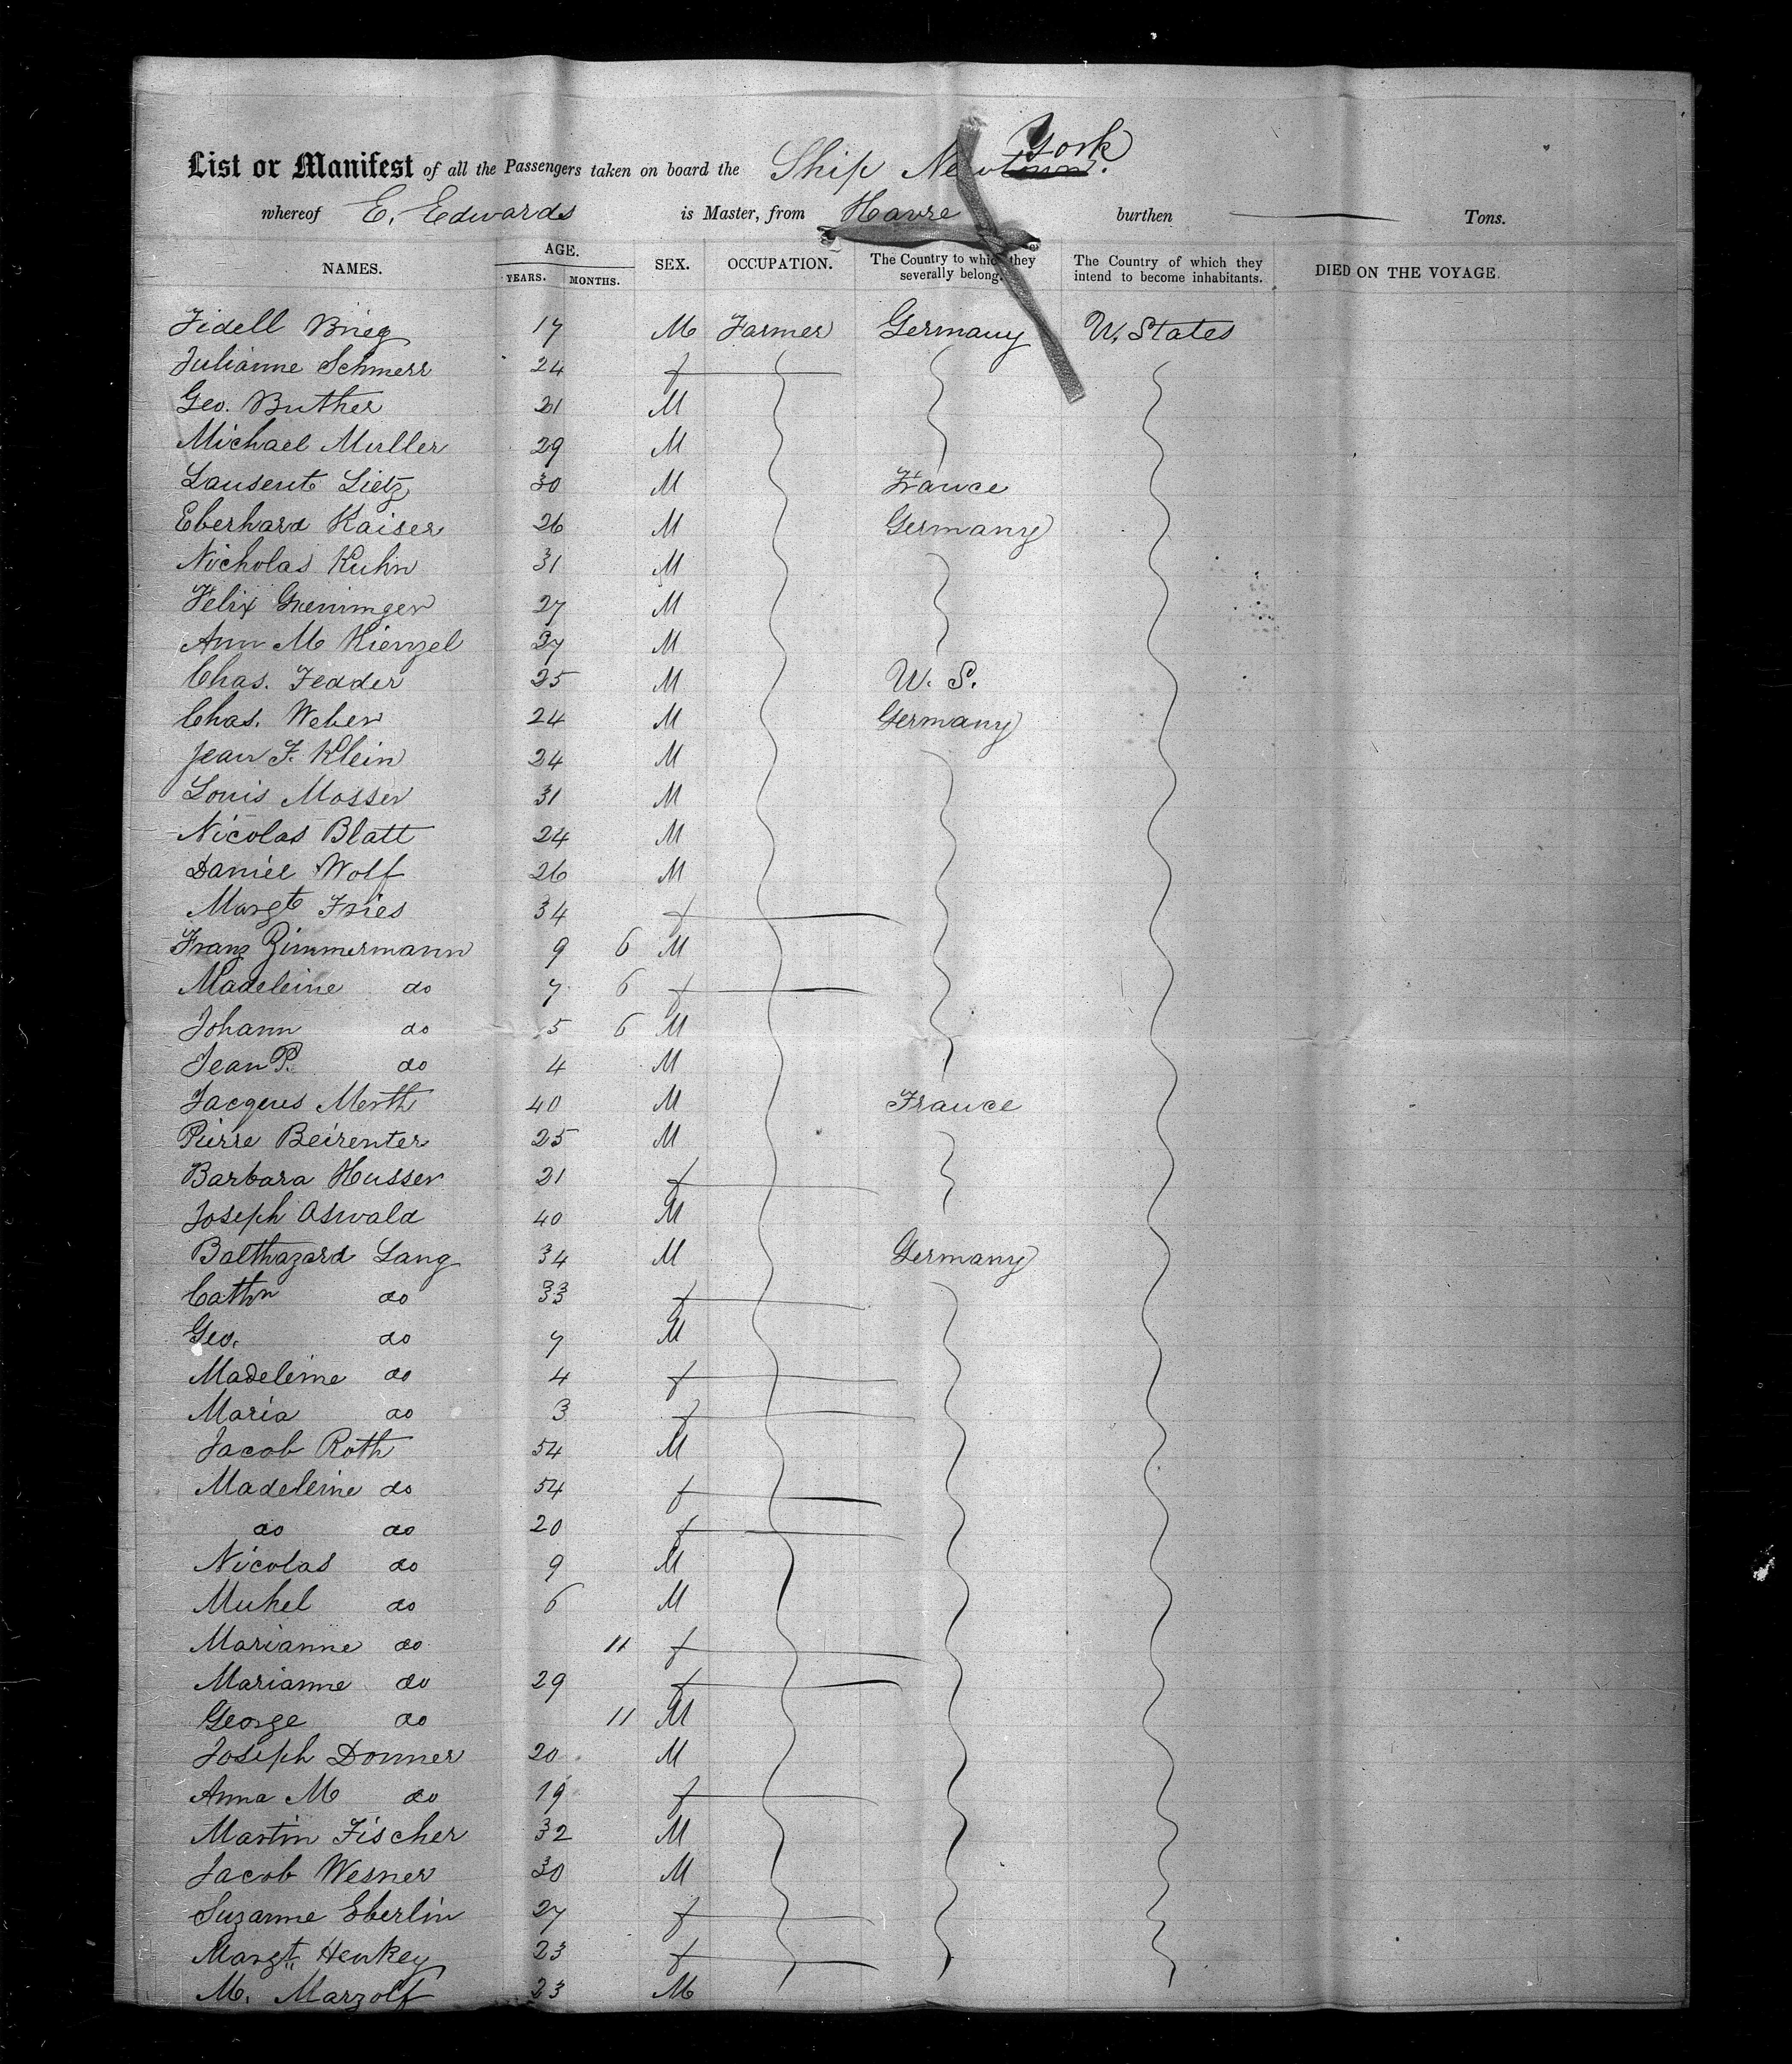 York
List or Manifest of all the Passengers taken on board the Ship New
whereof E. Edwards is Master, from Havre burthen Tons.
NAMES. AGE. YEARS. MONTHS. SEX. OCCUPATION. The Country to which they severally belong. The Country of which they intend to become inhabitants. DIED ON THE VOYAGE.
Fidell Brieg 17 M Farmer Germany U. States
Julianne Schmerr 24 f
Geo. Buther 21 M
Michael Muller 29 M
Lietz 30 M France
Eberhard Kaiser 26 M Germany
Nicholas Kuhn 31 M
Felix Greninger 27 M
Ann M Kienzel 27 M
Chas. Fedder 25 M U. S.
Chas. Weber 24 M Germany
Jean F. Klein 24 M
Louis Mosser 31 M
Nicolas Blatt 24 M
Daniel Wolf 26 M
Margt Fries 34 f
Franz Zimmermann 9 6 M
Madeleine do 7 6 f
Johann do 5 6 M
Jean P. do 4 M
Jacques Merth 40 M France
Pierre Beirenter 25 M
Barbara Husser 21 f
Joseph Oswald 40 M
Balthazard Lang 34 M Germany
Cathn do 33 f
Geo. do 7 M
Madeleine do 4 f
Maria do 3 f
Jacob Roth 54 M
Madeleine do 54 f
do do 20 f
Nicolas do 9 M
Muhel do 6 M
Marianne do 11 f
Marianne do 29 f
George do 11 M
Joseph Donner 20 M
Anna M do 19 f
Martin Fischer 32 M
Jacob Wesner 30 M
Suzanne Eberlin 27 f
Margt. Henkey 23 f
M. Marzolf 23 M